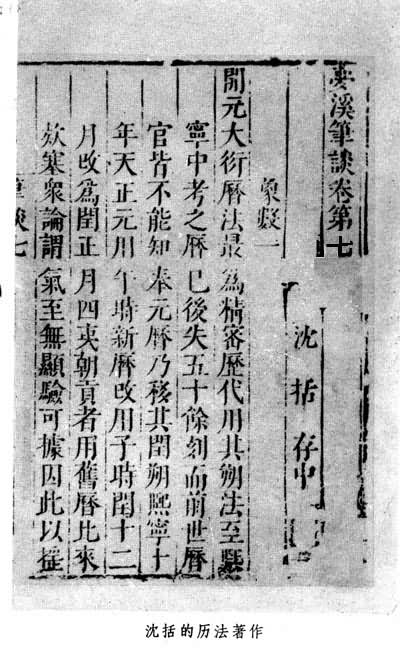 夢溪筆談卷第七
沈括存中
象數一
開元大衍曆法最為精密歷代用其朔法至熙
寧中考之曆已後失五十餘刻而前世曆
官皆不能知奉元曆乃移其閏朔熙寧十
年天正元用午時新曆改用子時閏十二
月改為閏正月四夷朝貢者用舊曆比來
欵塞眾論謂氣至無顯驗可據因此以搖
筆談七
沈括的历法著作